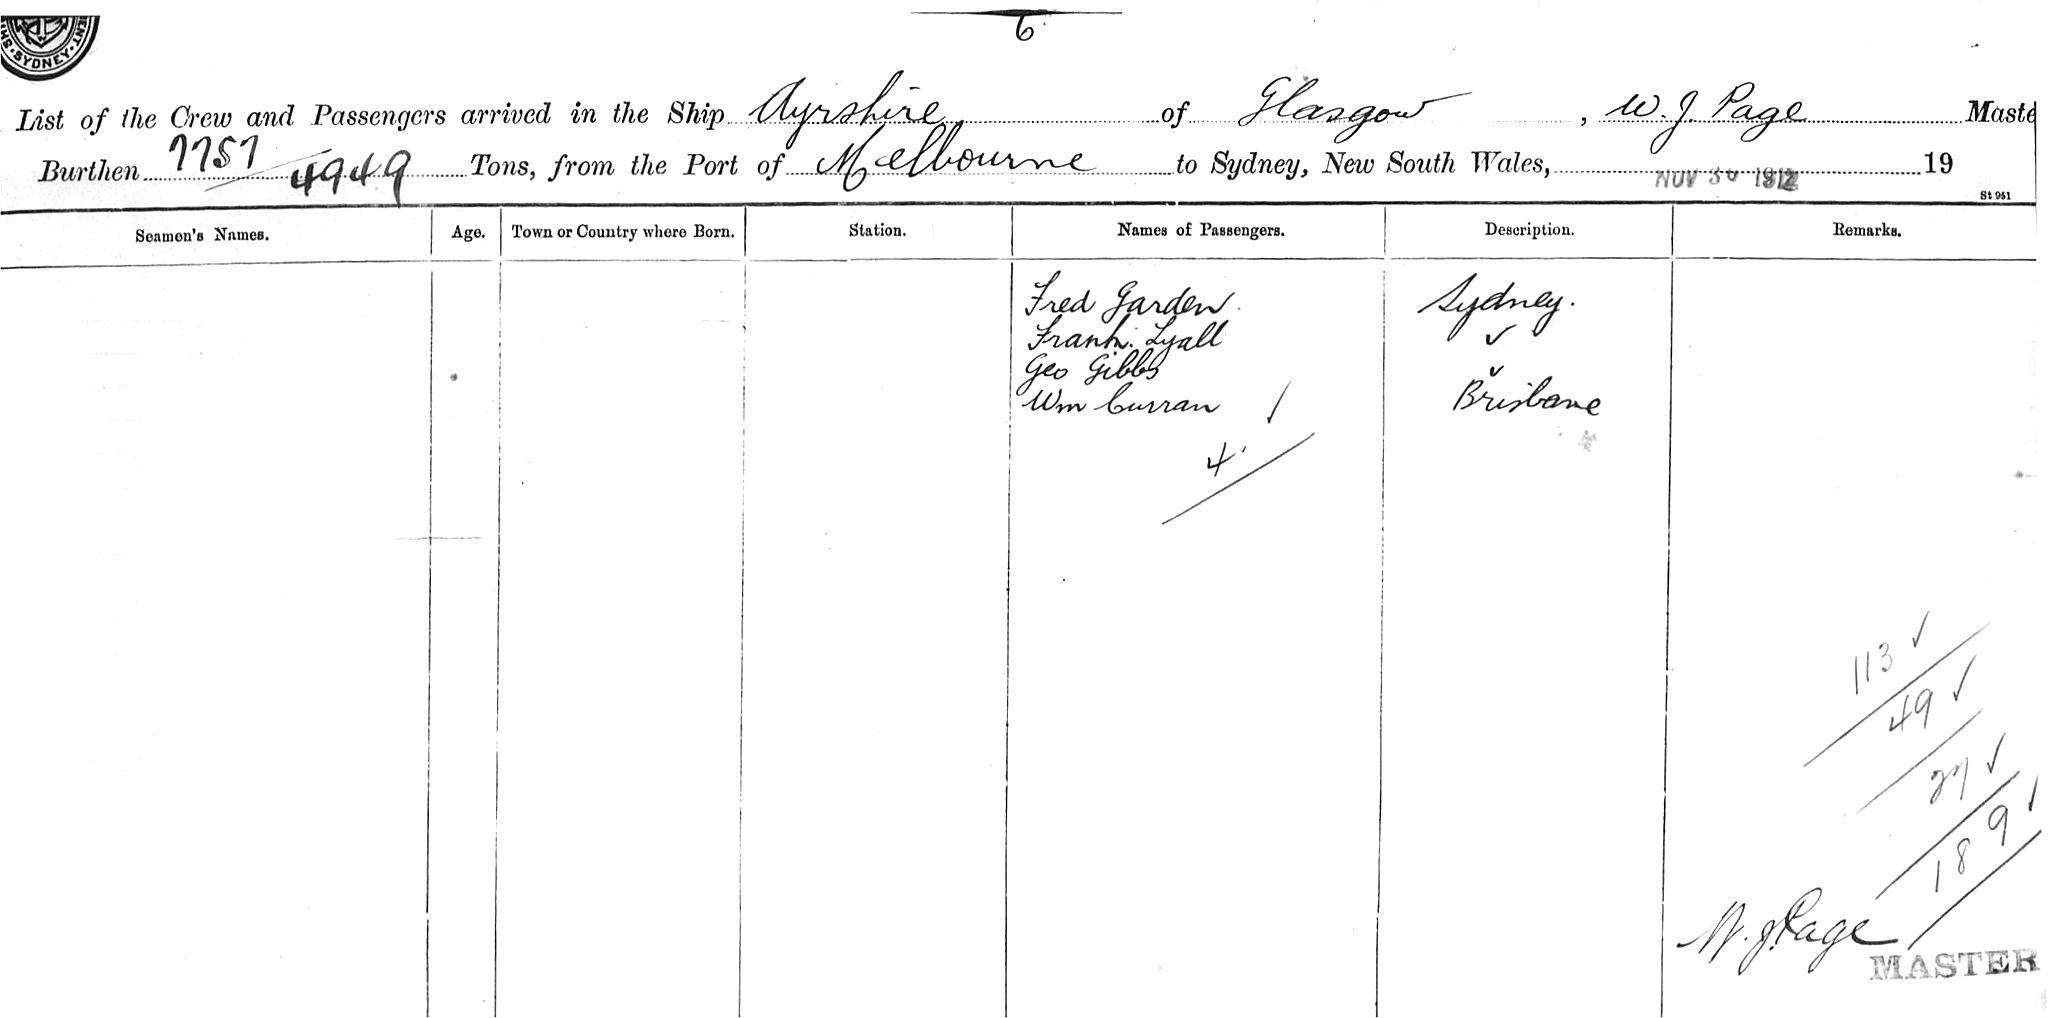 SYDNEY
6
List of the Crew and Passengers arrived in the Ship Ayrshire of Glasgow, W. J. Page Maste
Burthen 7757 4949 Tons, from the Port of Melbourne to Sydney, New South Wales, NOV 30 1912 19
St 951
Seamen's Names. Age. Town or Country where Born. Station. Names of Passengers. Description. Remarks.
Fred Garden. Sydney.
Frank. Lyall ✓
Geo Gibbs ✓
Wm Curran ✓ Brisbane
4
113 ✓
49 ✓
27 ✓
189 ✓
W. J. Page
MASTER